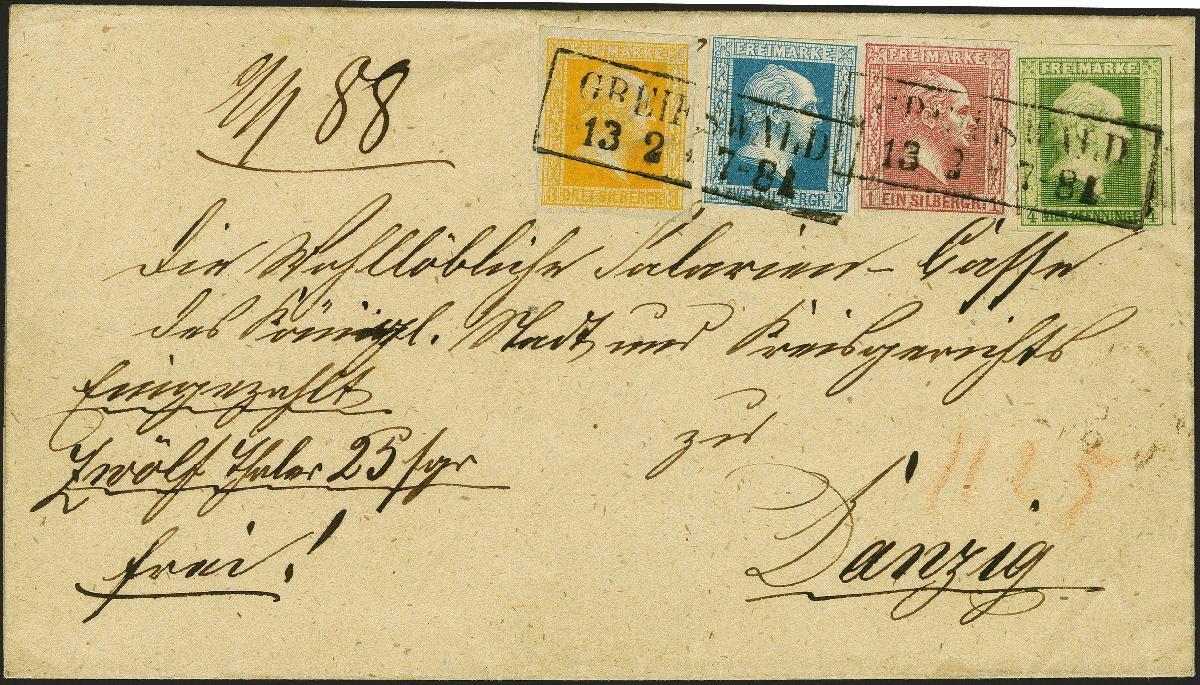 88
FREIMARKE
3 DREI SILBERGR 3
FREIMARKE
SILBERGR 2
FREIMARKE
1 EIN SILBERGR 1
FREIMARKE
4 PFENNINGE 4
GREIFSWALD
13 2 7-8 A
GREIFSWALD
13 2 7-8 A
Die Wohllöbliche Salarien-Casse
des Königl. Stadt und Kreisgerichts
Eingezahlt
zu
Zwölf Thaler 25 sgr
1125
Danzig
frei!